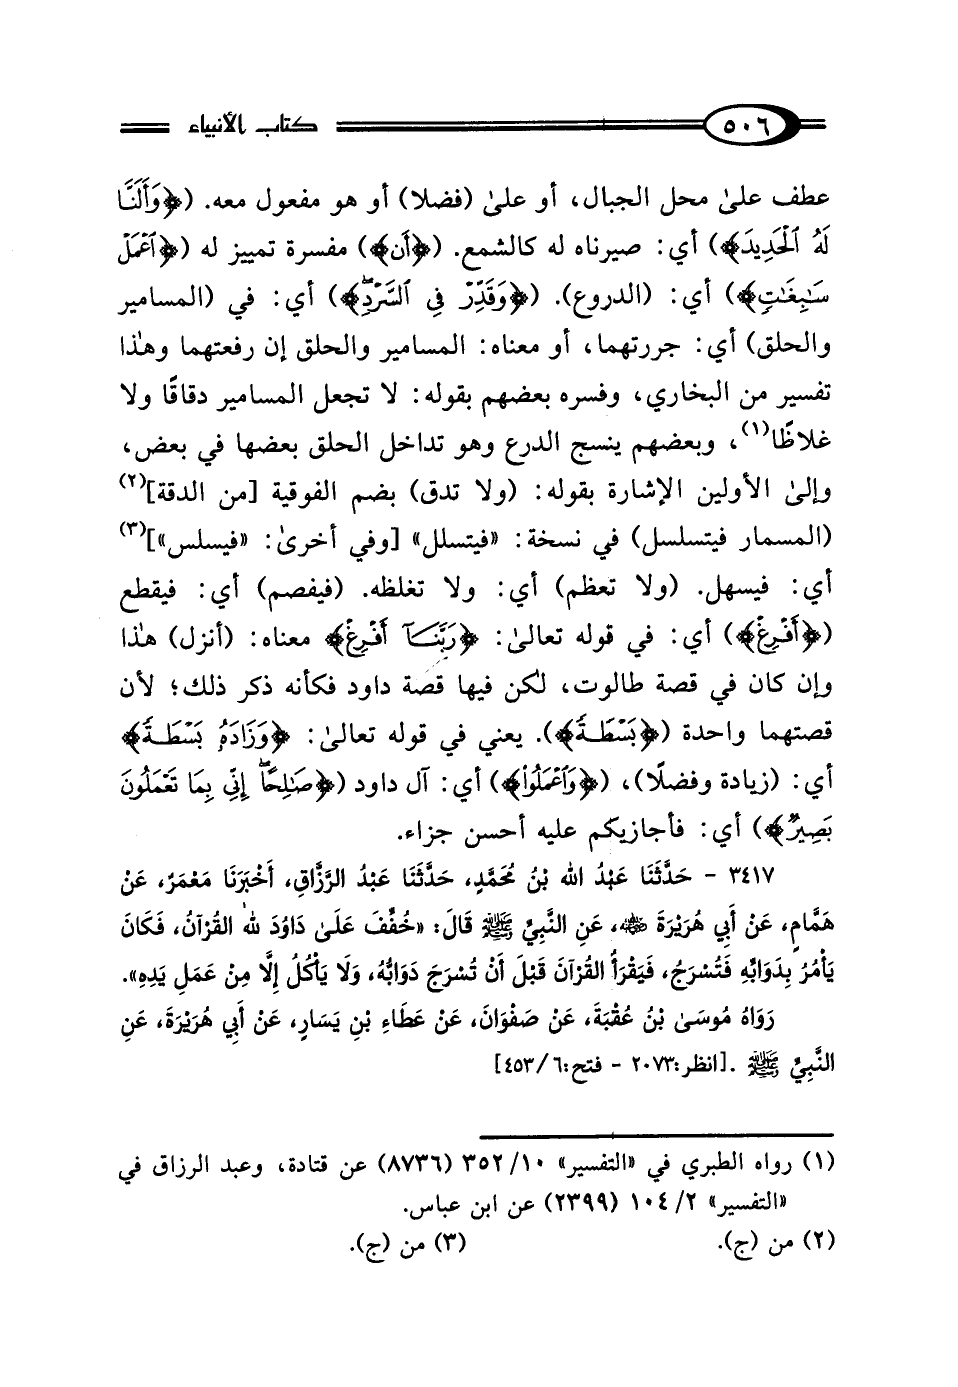 ٥٠٦ كتاب الأنبياء
عطف علىٰ محل الجبال، أو علىٰ (فضلا) أو هو مفعول معه. (﴿وَأَلَنَّا
لَهُ ٱلْحَدِيدَ﴾) أي: صيرناه له كالشمع. (﴿أَنِ﴾) مفسرة تمييز له (﴿ٱعْمَلْ
سَٰبِغَٰتٍ﴾) أي: (الدروع). (﴿وَقَدِّرْ فِى ٱلسَّرْدِۖ﴾) أي: في (المسامير
والحلق) أي: جررتهما، أو معناه: المسامير والحلق إن رفعتهما وهذا
تفسير من البخاري، وفسره بعضهم بقوله: لا تجعل المسامير دقاقًا ولا
غلاظًا(١)، وبعضهم ينسج الدرع وهو تداخل الحلق بعضها في بعض،
وإلىٰ الأولين الإشارة بقوله: (ولا تدق) بضم الفوقية [من الدقة](٢)
(المسمار فيتسلسل) في نسخة: «فيتسلل» [وفي أخرىٰ: «فيسلس»](٣)
أي: فيسهل. (ولا تعظم) أي: ولا تغلظه. (فيفصم) أي: فيقطع
(﴿أَفْرِغْ﴾) أي: في قوله تعالىٰ: ﴿رَبَّنَآ أَفْرِغْ﴾ معناه: (أنزل) هذا
وإن كان في قصة طالوت، لكن فيها قصة داود فكأنه ذكر ذلك؛ لأن
قصتهما واحدة (﴿بَسْطَةً﴾). يعني في قوله تعالىٰ: ﴿وَزَادَهُۥ بَسْطَةً﴾
أي: (زيادة وفضلًا)، (﴿وَٱعْمَلُوا۟﴾) أي: آل داود (﴿صَٰلِحًاۖ إِنِّى بِمَا تَعْمَلُونَ
بَصِيرٌ﴾) أي: فأجازيكم عليه أحسن جزاء.
٣٤١٧ - حَدَّثَنَا عَبْدُ الله بْنُ مُحَمَّدٍ، حَدَّثَنَا عَبْدُ الرَّزَّاقِ، أَخْبَرَنَا مَعْمَرٌ، عَنْ
هَمَّامٍ، عَنْ أَبِي هُرَيْرَةَ ﵁، عَنِ النَّبِيِّ ﷺ قَالَ: «خُفِّفَ عَلَىٰ دَاوُدَ ﵇ القُرْآنُ، فَكَانَ
يَأْمُرُ بِدَوَابِّهِ فَتُسْرَجُ، فَيَقْرَأُ القُرْآنَ قَبْلَ أَنْ تُسْرَجَ دَوَابُّهُ، وَلَا يَأْكُلُ إِلَّا مِنْ عَمَلِ يَدِهِ».
رَوَاهُ مُوسَىٰ بْنُ عُقْبَةَ، عَنْ صَفْوَانَ، عَنْ عَطَاءِ بْنِ يَسَارٍ، عَنْ أَبِي هُرَيْرَةَ، عَنِ
النَّبِيِّ ﷺ .[انظر:٢٠٧٣ - فتح:٤٥٣/٦]
(١) رواه الطبري في «التفسير» ٣٥٢/١٠ (٨٧٣٦) عن قتادة، وعبد الرزاق في
«التفسير» ١٠٤/٢ (٢٣٩٩) عن ابن عباس.
(٢) من (ج). (٣) من (ج).